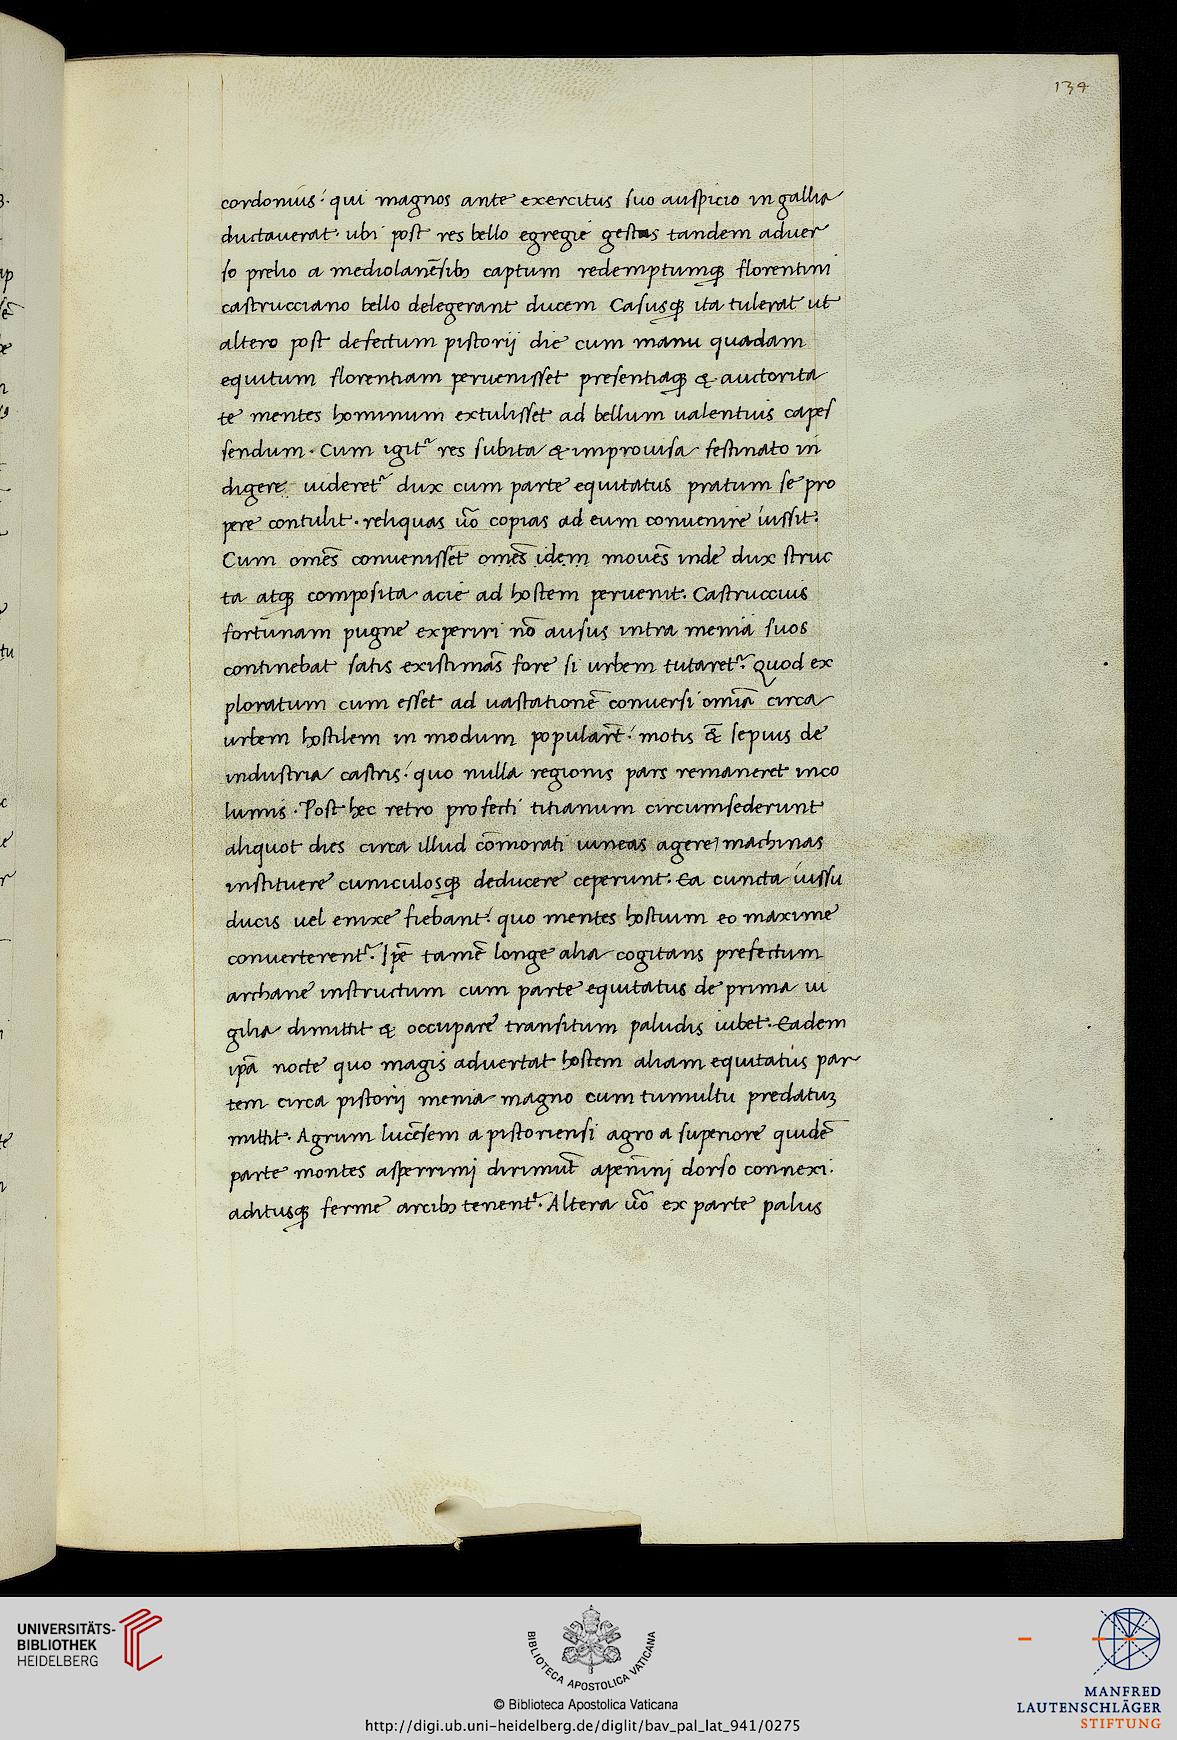 134
cordonius: qui magnos ante exercitus suo auspicio in gallia
ductauerat. ubi post res bello egregie gestas tandem aduer
so prelio a mediolanēsibꝫ captum redemptumqꝫ florentini
castrucciano bello delegerant ducem Casusqꝫ ita tulerat ut
altero post defectum pistorij die cum manu quadam
equitum florentiam peruenisset presentiaqꝫ & auctorita
te mentes hominum extulisset ad bellum ualentius capes
sendum. Cum igit᷑ res subita & improuisa festinato in
digere uideret᷑ dux cum parte equitatus pratum se pro
pere contulit. reliquas ūo copias ad eum conuenire iussit.
Cum omēs conuenissēt omēs idem mouēs inde dux struc
ta atqꝫ composita acie ad hostem peruenit. Castruccius
fortunam pugne experiri nō ausus intra menia suos
continebat satis existimās fore si urbem tutaret᷑. Quod ex
ploratum cum esset ad uastationē conuersi omīa circa
urbem hostilem in modum populart̄: motis &̄ sepius de
industria castris: quo nulla regionis pars remaneret inco
lumis. Post hec retro profecti titianum circumsederunt
aliquot dies circa illud cōmorati uineas agere, machinas
instituere cuniculosqꝫ deducere ceperunt. Ea cuncta iussu
ducis uel enixe fiebant: quo mentes hostium eo maxime
conuerterent᷑. Ipē tamē longe alia cogitans prefectum
archane instructum cum parte equitatus de prima ui
gilia dimittit & occupare transitum paludis iubet. Eadem
ipā nocte quo magis aduertat hostem aliam equitatus par
tem circa pistorij menia magno cum tumultu predatuꝫ
mittit. Agrum lucēsem a pistoriensi agro a superiore quidē
parte montes asperrimj dirimūt apeninj dorso connexi.
aditusqꝫ ferme arcibꝫ tenent᷑. Altera ūo ex parte palus
UNIVERSITÄTS-
BIBLIOTHEK
HEIDELBERG
BIBLIOTECA APOSTOLICA VATICANA
© Biblioteca Apostolica Vaticana
http://digi.ub.uni-heidelberg.de/diglit/bav_pal_lat_941/0275
MANFRED
LAUTENSCHLÄGER
STIFTUNG